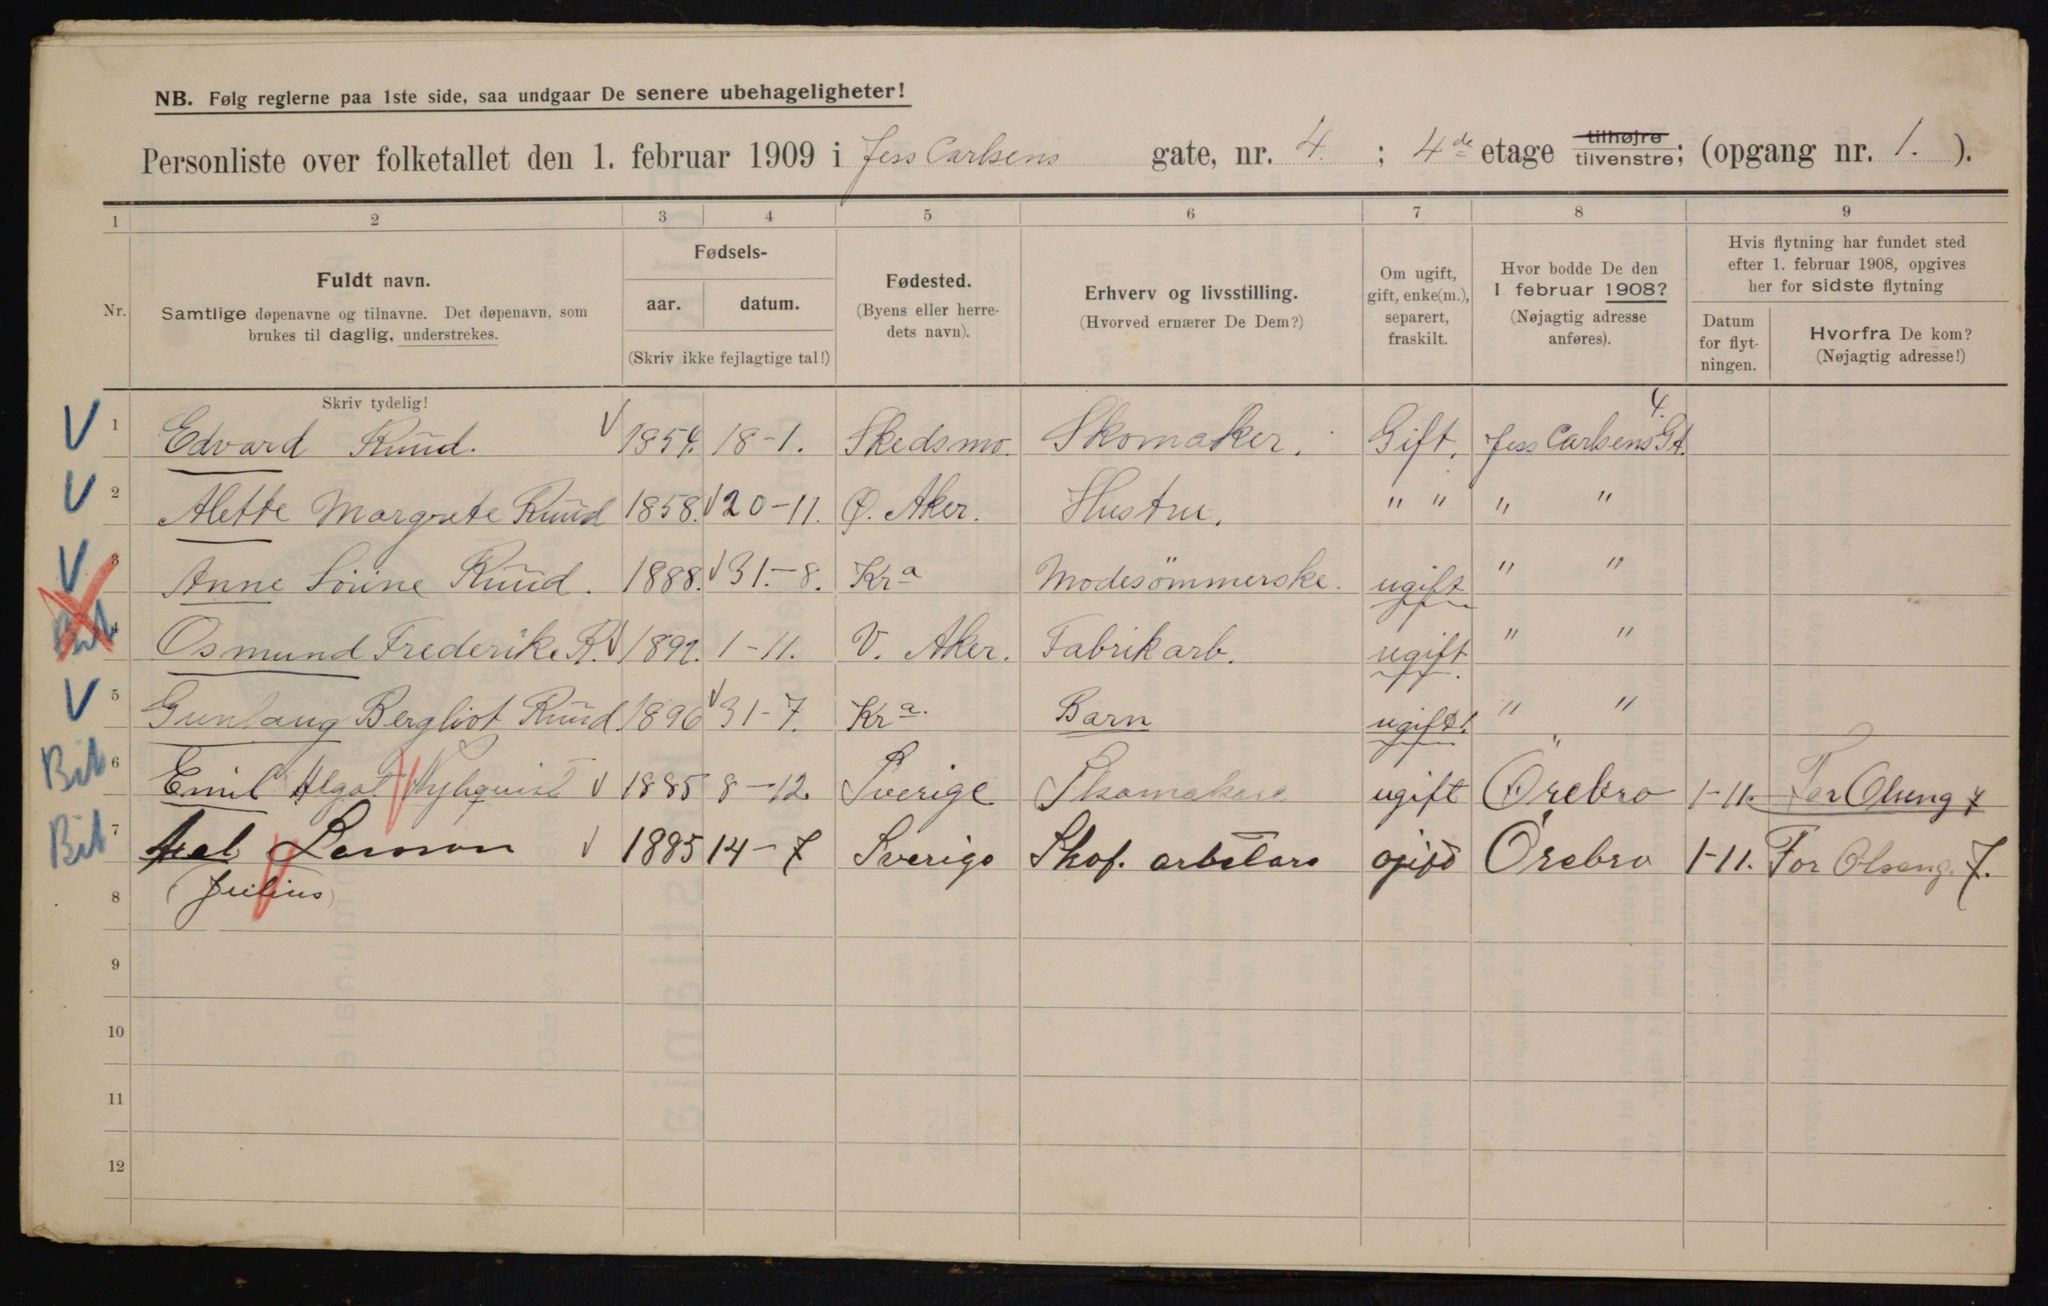 NB. Følg reglerne paa 1ste side, saa undgaar De senere ubehageligheter!
Personliste over folketallet den 1. februar 1909 i Jess Carlsens gate, nr. 4. ; 4de etage tilhøjre tilvenstre; (opgang nr. 1. ).
1 2 3 4 5 6 7 8 9
Nr.
Fuldt navn.
Samtlige døpenavne og tilnavne. Det døpenavn, som
brukes til daglig, understrekes.
Fødsels-
aar. datum.
(Skriv ikke fejlagtige tal!)
Fødested.
(Byens eller herre-
dets navn).
Erhverv og livsstilling.
(Hvorved ernærer De Dem?)
Om ugift,
gift, enke(m.),
separert,
fraskilt.
Hvor bodde De den
1 februar 1908?
(Nøjagtig adresse
anføres).
Hvis flytning har fundet sted
efter 1. februar 1908, opgives
her for sidste flytning
Datum
for flyt-
ningen.
Hvorfra De kom?
(Nøjagtig adresse!)
Skriv tydelig!
V 1 Edvard Ruud. V 1854. 18-1. Skedsmo. Skomaker. Gift. Jess Carlsens Gt. 4.
V 2 Alette Margrete Ruud 1858. V 20-11. Ø. Aker. Hustru. " " " "
V 3 Anne Ruud. 1888. V 31.-8. Kra Modesömmerske. ugift " "
Bib 4 Osmund Frederik R. V 1892. 1-11. V. Aker. Fabrikarb. ugift " "
V 5 Gunlaug Bergliot Ruud. 1896 V 31-7. Kra. Barn ugift. " "
Bib 6 Emil Algot V 1885 8-12. Sverige Skomakare ugift Örebro 1-11. Tor Olseng 7
Bib 7 Axel Larsson V 1885 14-7 Sverige Skof. arbetare ogift Örebro 1-11. Tor Olseng. 7.
8 (Julius)
9
10
11
12